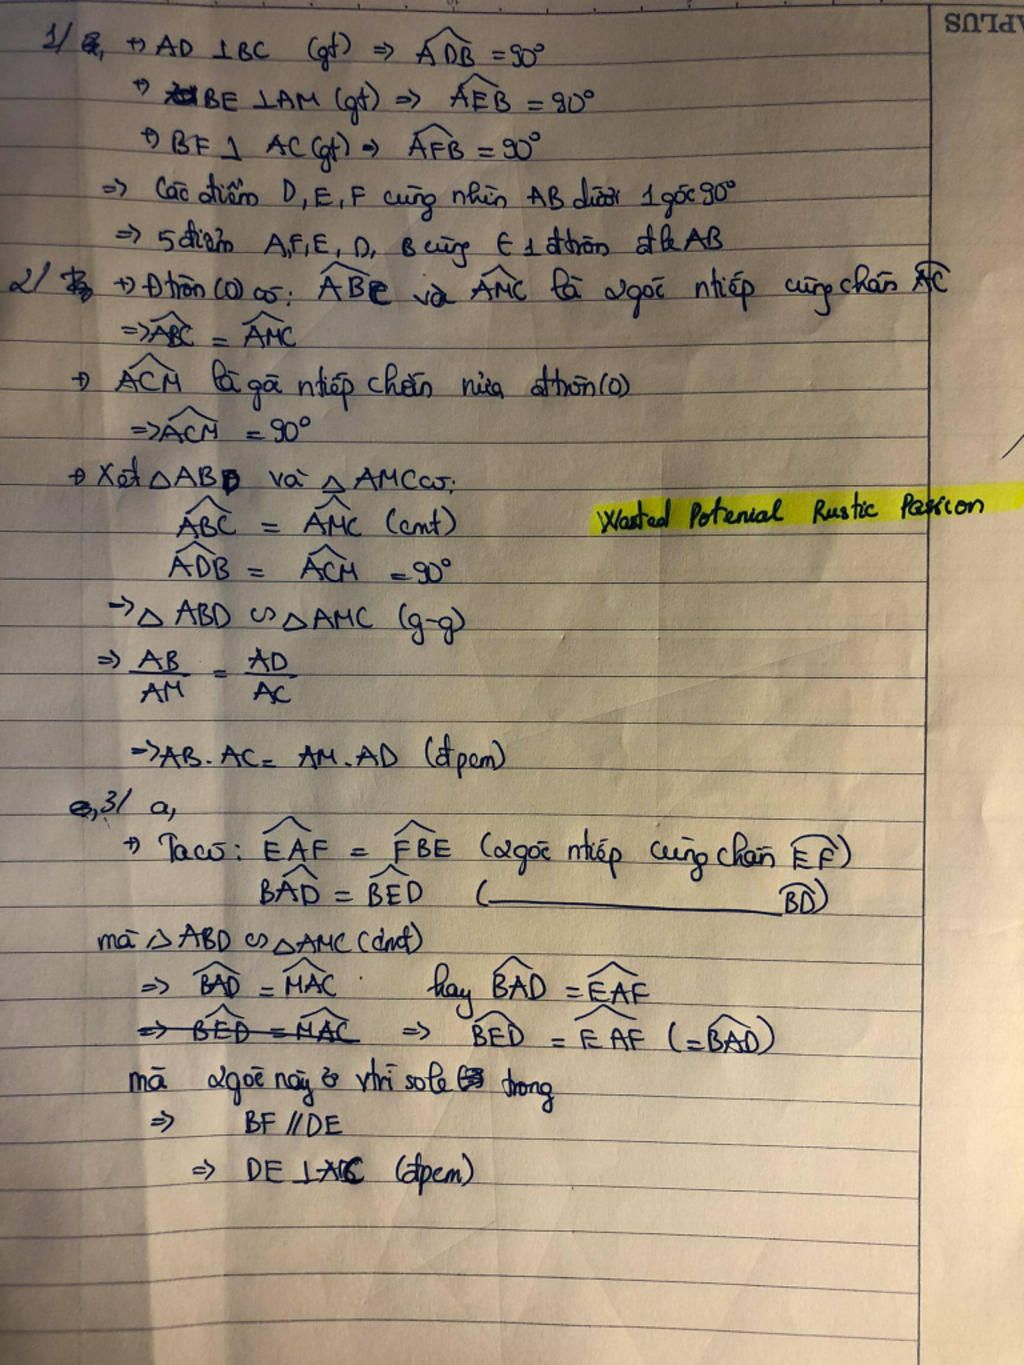 APLUS
1/ a, +) AD ⊥ BC (gt) => ADB = 90°
+) BE ⊥ AM (gt) => AEB = 90°
+) BF ⊥ AC (gt) => AFB = 90°
=> Các điểm D, E, F cùng nhìn AB dưới 1 góc 90°
=> 5 điểm A, F, E, D, B cùng ∈ 1 đtròn đk AB
2/ b, +) Đtròn (O) có: ABC và AMC là 2 góc ntiếp cùng chắn AC
=> ABC = AMC
+) ACM là góc ntiếp chắn nửa đtròn (O)
=> ACM = 90°
+) Xét △ABD và △AMC có:
ABC = AMC (cmt)
Wasted Potenial Rustic Passion
ADB = ACM = 90°
=> △ABD ∽ △AMC (g-g)
=> AB/AM = AD/AC
=> AB.AC = AM.AD (đpcm)
c, 3/ a,
+) Ta có: EAF = FBE (2 góc ntiếp cùng chắn EF)
BAD = BED (__________ BD)
mà △ABD ∽ △AMC (cmt)
=> BAD = MAC hay BAD = EAF
=> BED = MAC => BED = EAF (=BAD)
mà 2 góc này ở vtrí sole trong
=> BF // DE
=> DE ⊥ AC (đpcm)